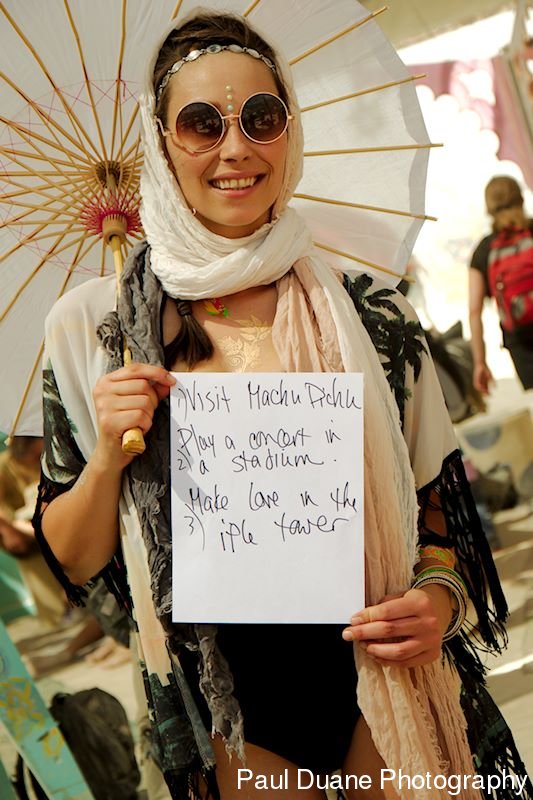 1) Visit Machu Pichu
Play a concert in
2) a stadium.
Make love in the
3) iple tower
Paul Duane Photography